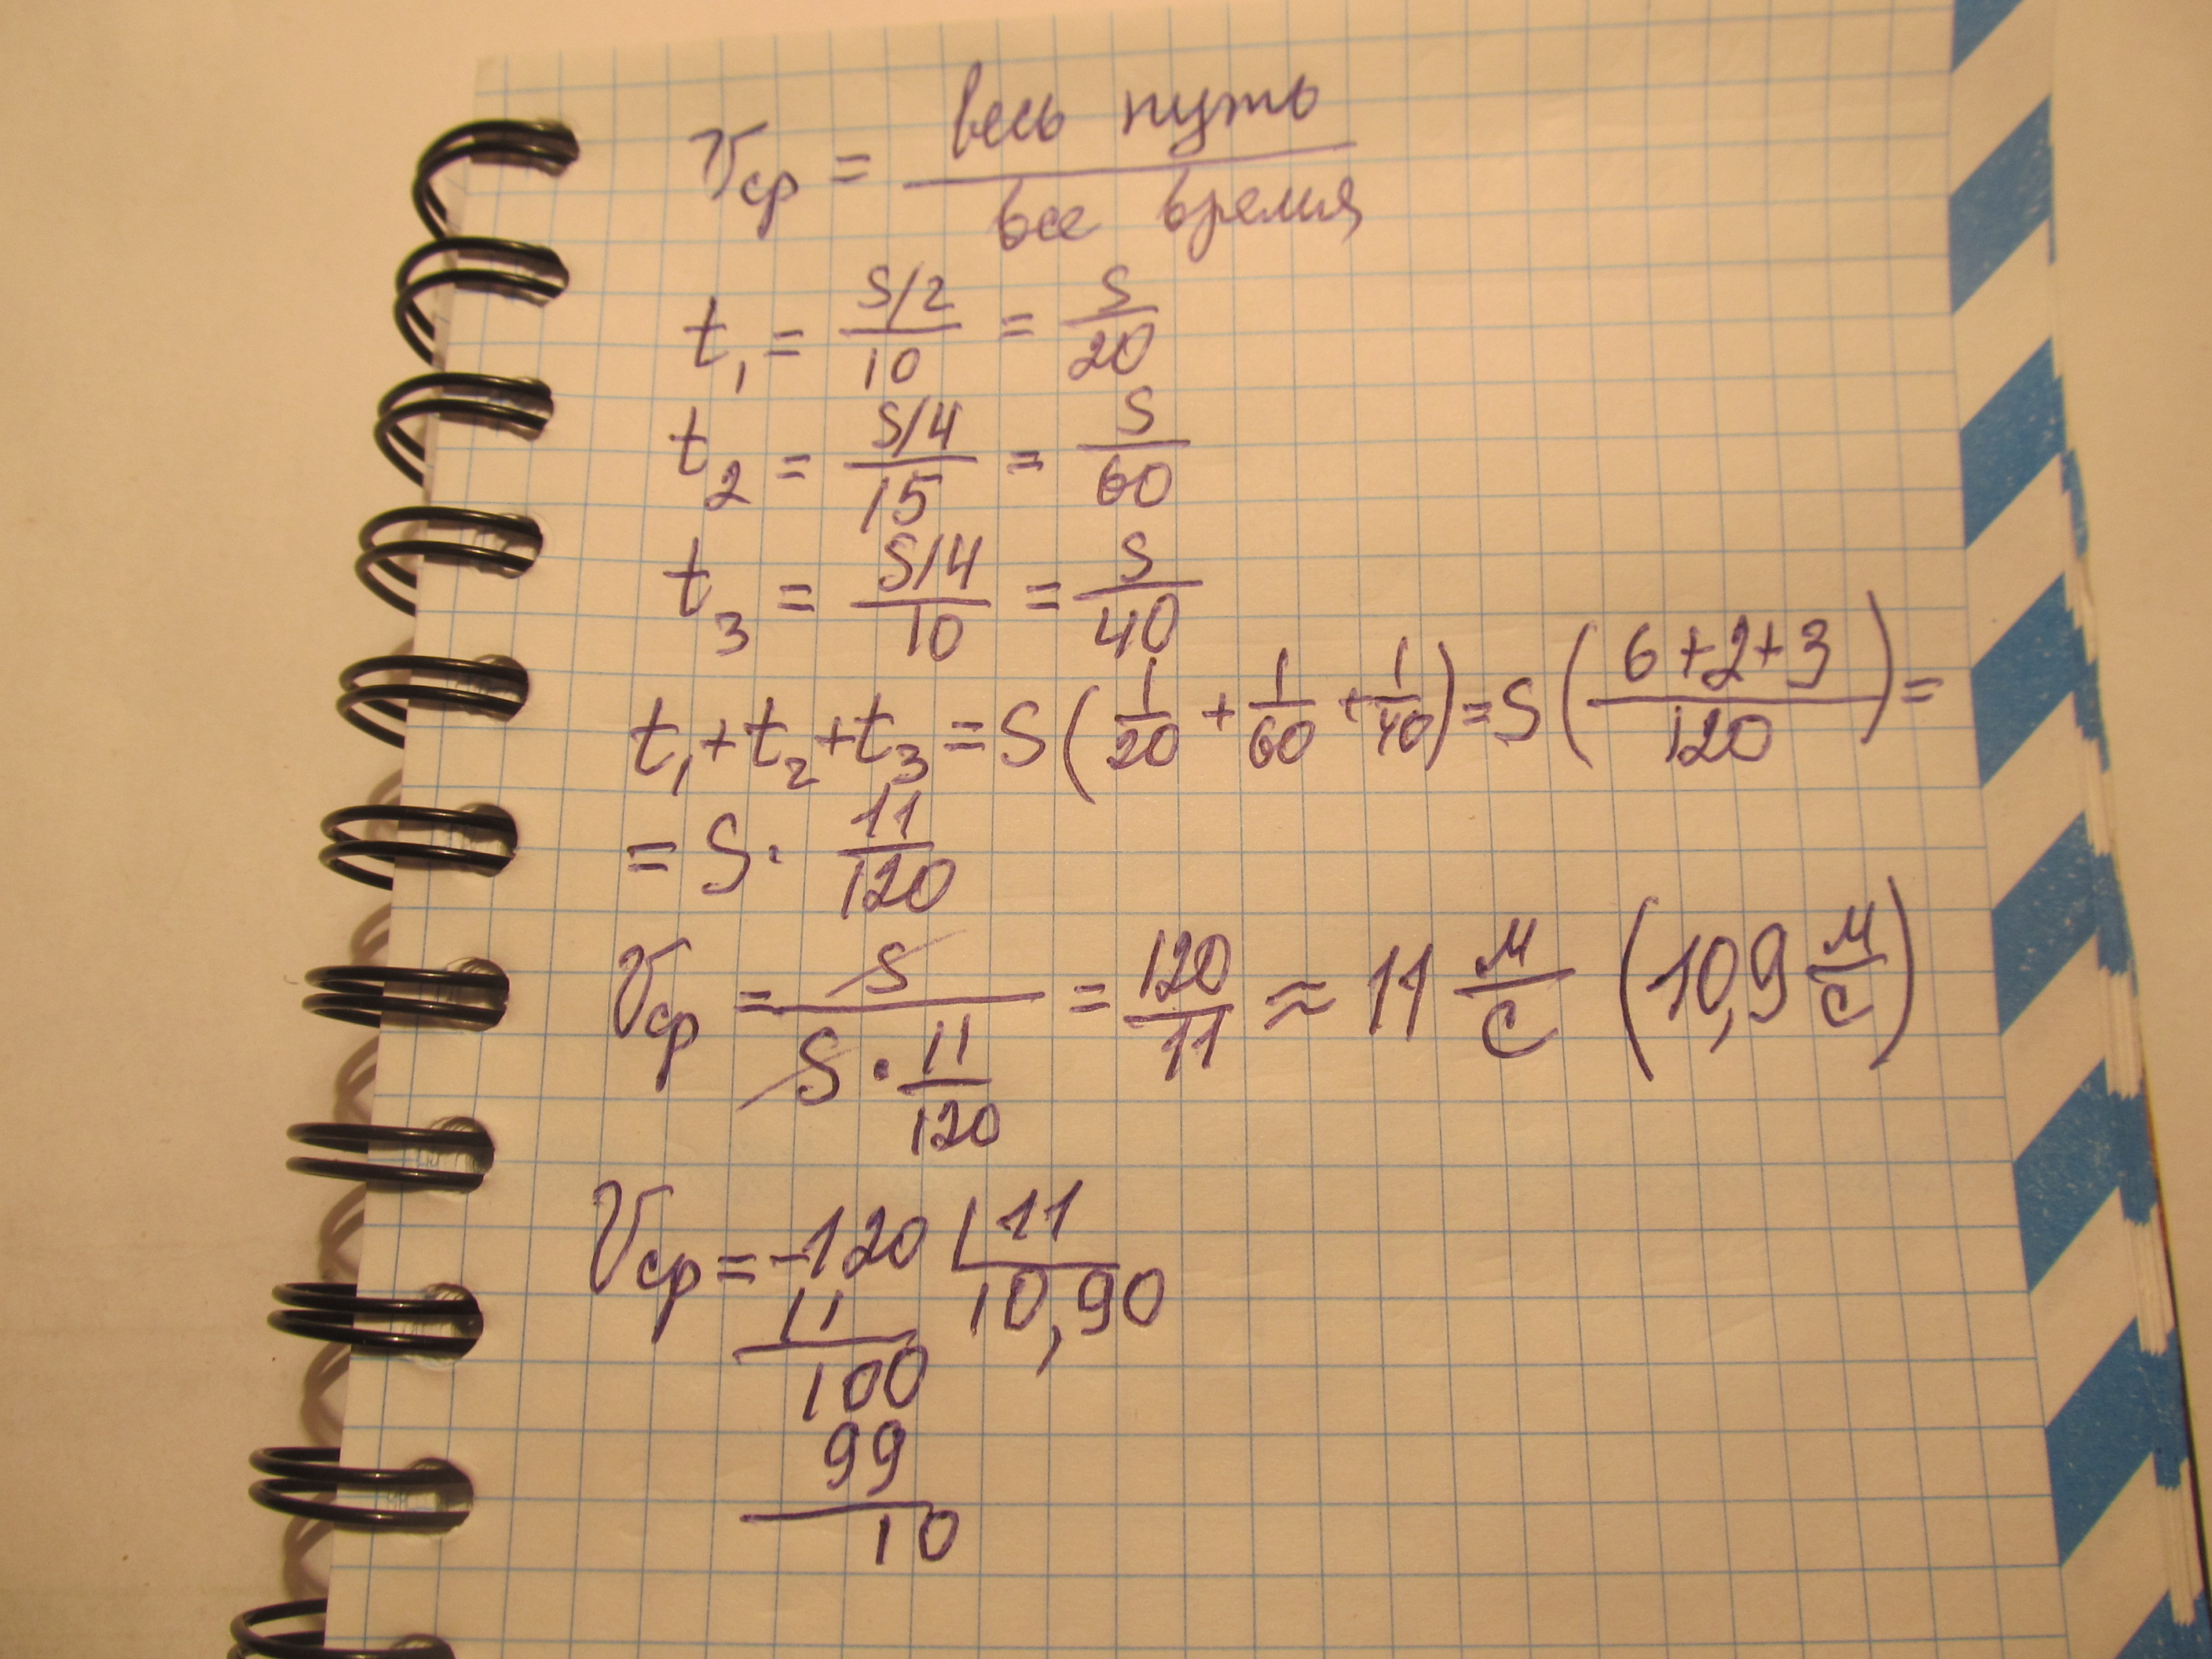 Vср = весь путь / все время
t₁ = (S/2)/10 = S/20
t₂ = (S/4)/15 = S/60
t₃ = (S/4)/10 = S/40
t₁+t₂+t₃ = S(1/20 + 1/60 + 1/40) = S((6+2+3)/120) =
= S· 11/120
Vср = S/(S · 11/120) = 120/11 ≈ 11 м/с (10,9 м/с)
Vср = -120 | 11
11 10,90
100
99
10